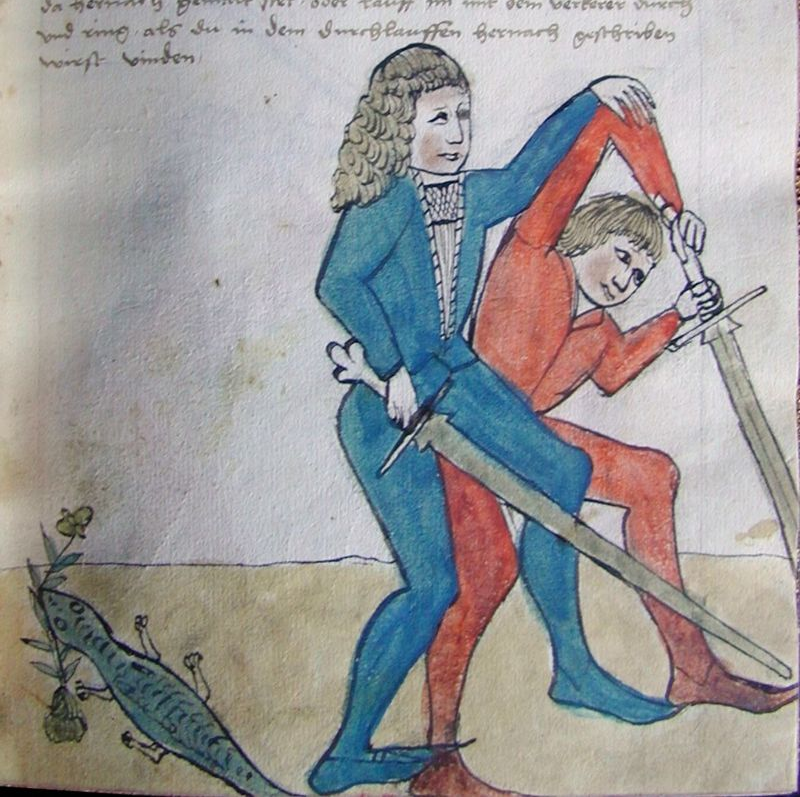 da hernach gemalt stet oder lauff im mit dem verkerer durch
vnd ring als du in dem durchlauffen hernach geschriben
wirst vinden